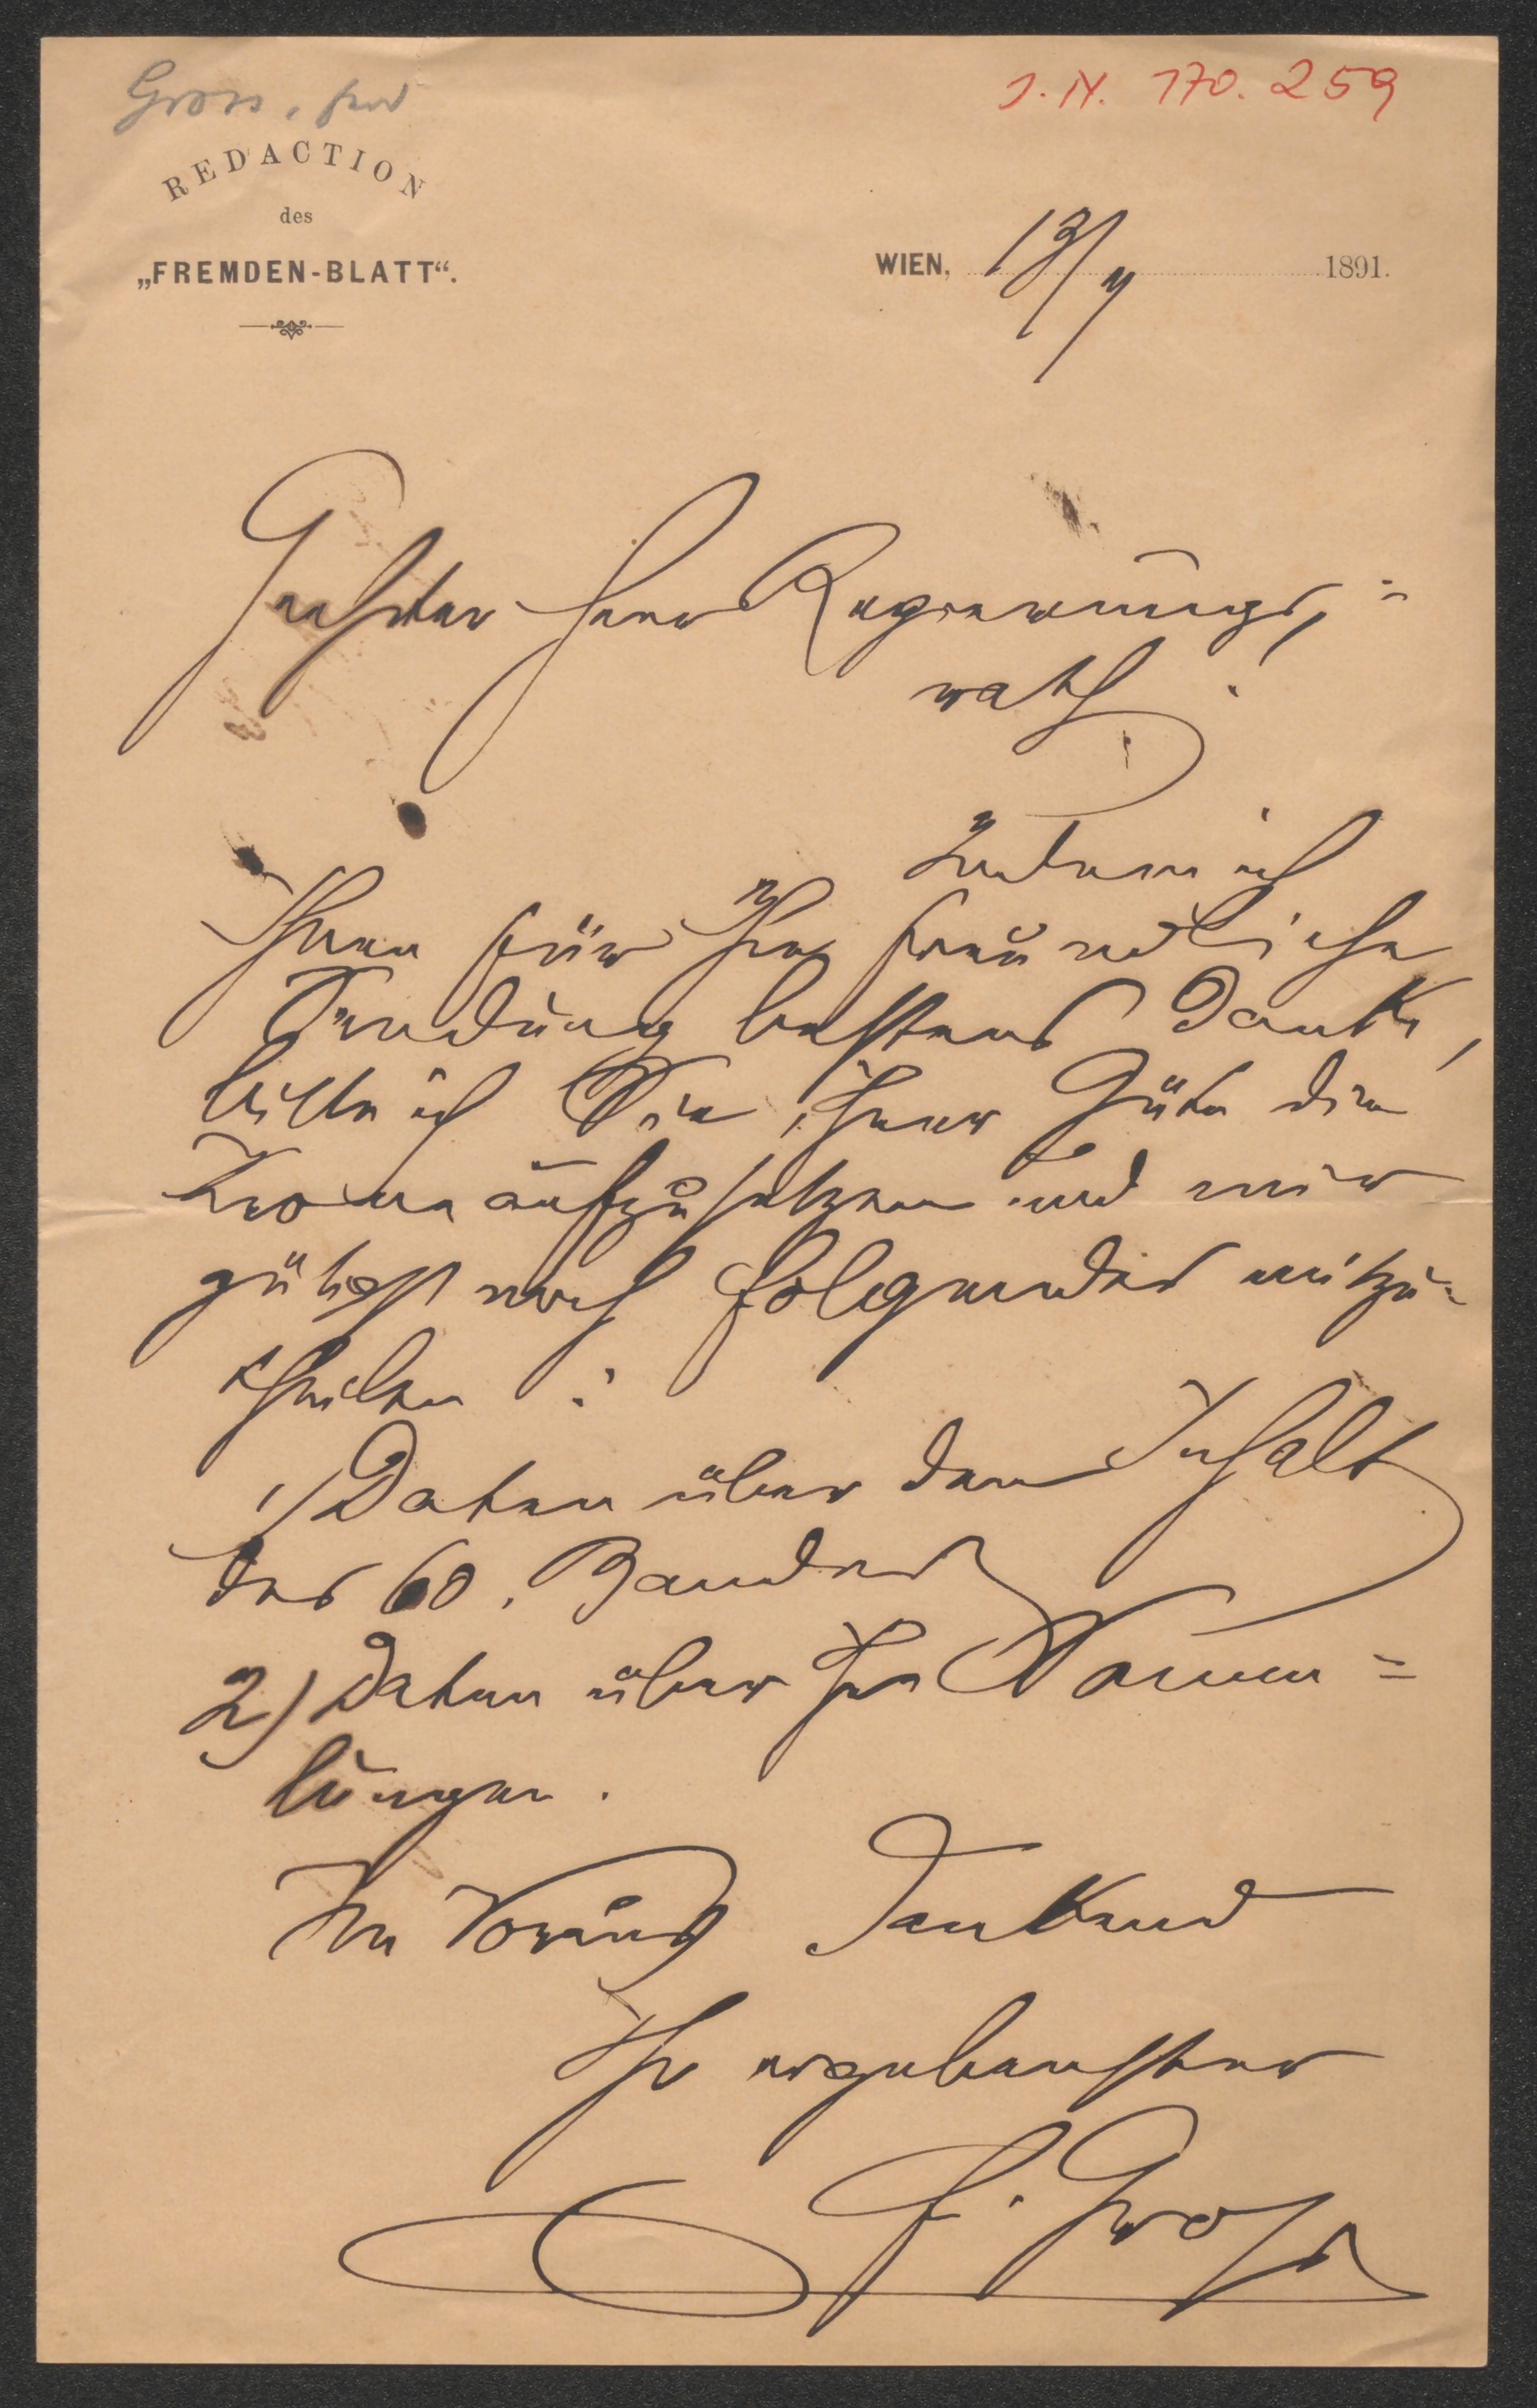 Gross, Ferd
J. N. 170.259
REDACTION
des
„FREMDEN-BLATT“.
WIEN, 13/ 1891.
Geehrter Herr Regierungs-
rath!
Indem ich
Ihnen für Ihre freundliche
Sendung bestens danke,
bitte ich Sie, Ihrer Güte die
Krone aufzusetzen und mir
gütigst noch folgendes mitzu-
theilen:
1) Daten über den Inhalt
des 60. Bandes
2) Daten über Ihre Samm=
lungen.
Im Voraus dankend
Ihr ergebenster
F. Groß